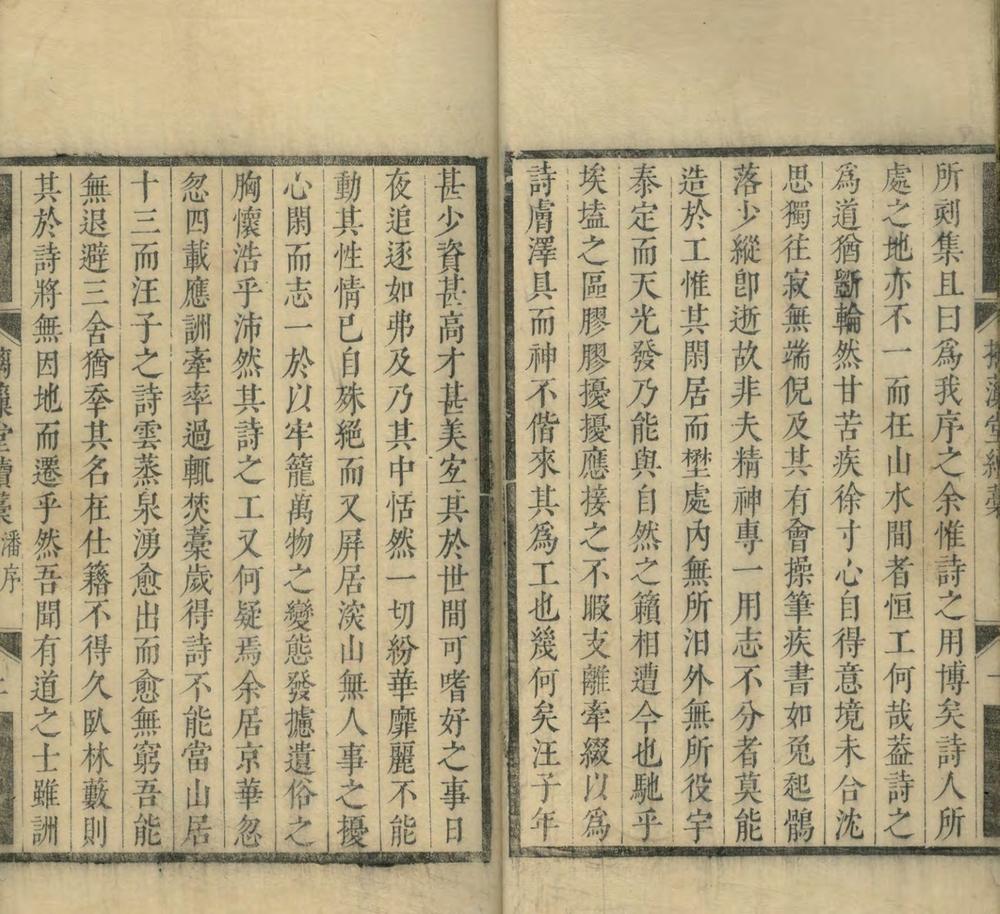 所刻集且曰為我序之余惟詩之用博矣詩人所
處之地亦不一而在山水間者恒工何哉葢詩之
為道猶斲輪然甘苦疾徐寸心自得意境未合沈
思獨往寂無端倪及其有會操筆疾書如兎起鶻
落少縱卽逝故非夫精神專一用志不分者莫能
造於工惟其閑居而埜處內無所汨外無所役宇
泰定而天光發乃能與自然之籟相遭今也馳乎
埃壒之區膠膠擾擾應接之不暇支離牽綴以為
詩膚澤具而神不偕來其為工也幾何矣汪子年
甚少資甚高才甚美宐其於世間可嗜好之事日
夜追逐如弗及乃其中恬然一切紛華靡麗不能
動其性情已自殊絕而又屏居深山無人事之擾
心閑而志一於以牢籠萬物之變態發攄遺俗之
胸懷浩乎沛然其詩之工又何疑焉余居京華忽
忽四載應詶牽率過輒焚藁歲得詩不能當山居
十三而汪子之詩雲蒸泉湧愈出而愈無窮吾能
無退避三舍猶幸其名在仕籍不得久臥林藪則
其於詩將無因地而遷乎然吾聞有道之士雖詶
堂續藁 潘序